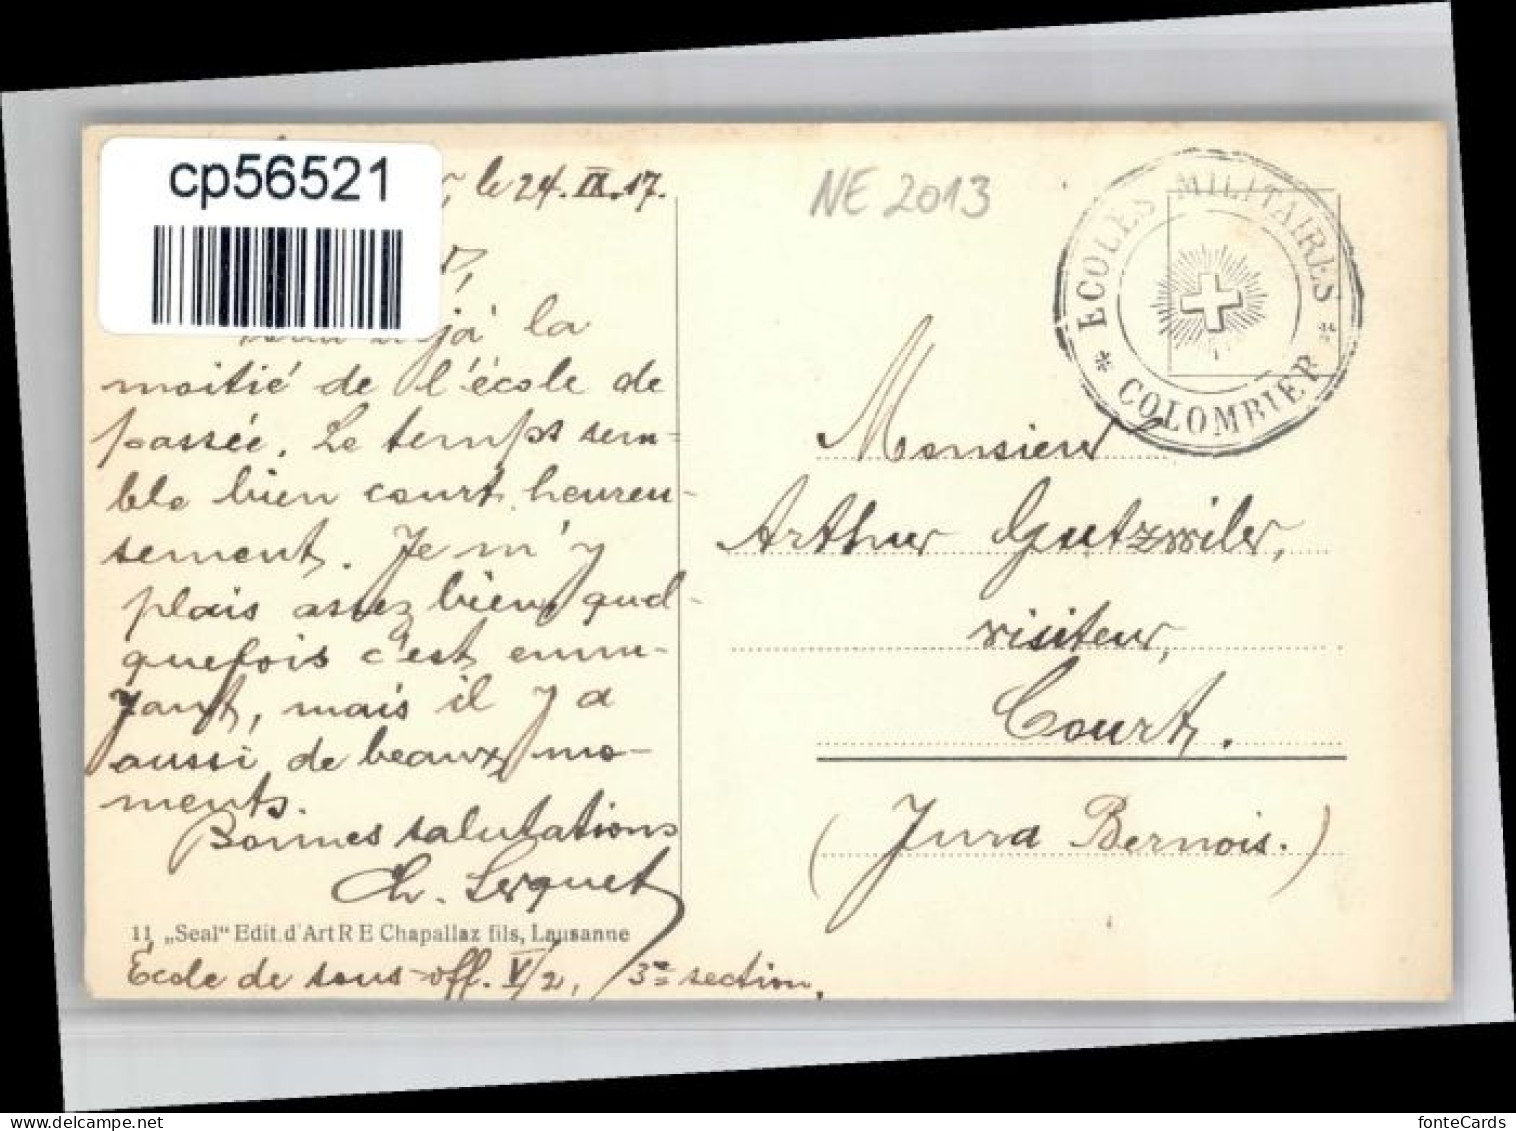 cp56521
le 24. IX. 17.
NE 2013
ECOLES MILITAIRES
* COLOMBIER *
la
moitié de l'école de
passée. Le temps sem-
ble bien court heureu-
sement. Je m'y
plais assez bien, quel-
quefois c'est ennu-
yant, mais il y a
aussi de beaux mo-
ments.
Bonnes salutations
Ch. Serquet
11 „Seal“ Edit. d'Art R E Chapallaz fils, Lausanne
École de sous-off. V/2, 3e section.
Monsieur
Arthur Gutzwiler,
visiteur,
Court.
(Jura Bernois.)
fonteCards